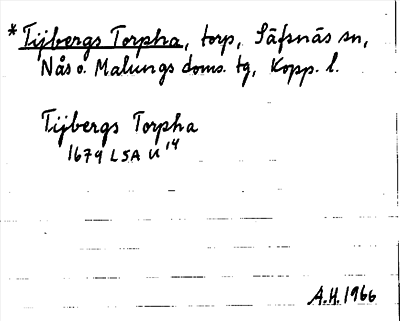 * Tijbergs Torpha, torp, Säfsnäs sn,
Nås o. Malungs doms. tg, Kopp. l.
Tijbergs Torpha
1679 LSA U 14
A.H. 1966